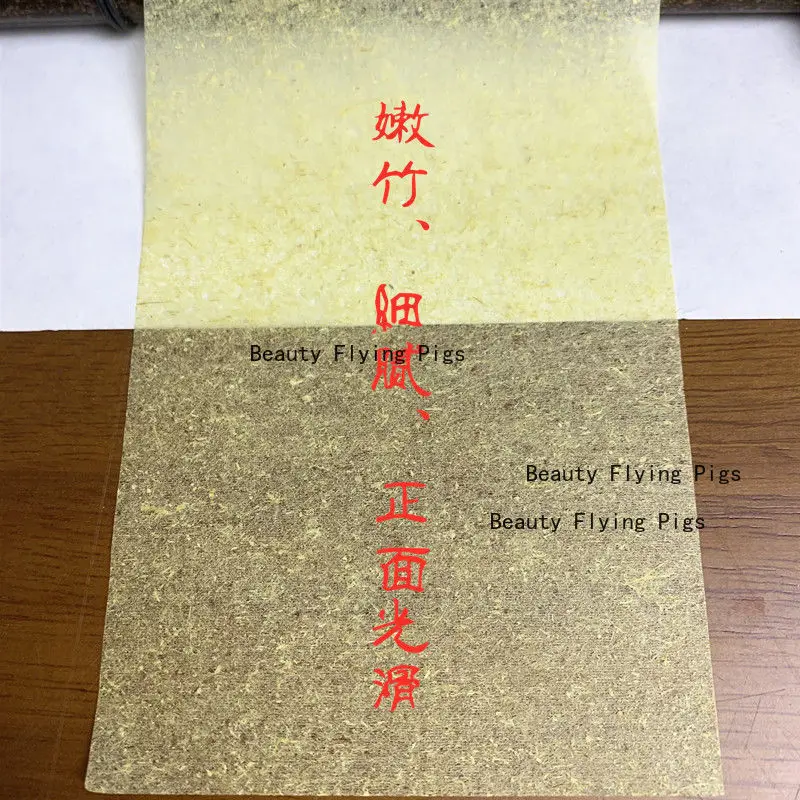 嫩竹、细腻、正面光滑
Beauty Flying Pigs
Beauty Flying Pigs
Beauty Flying Pigs